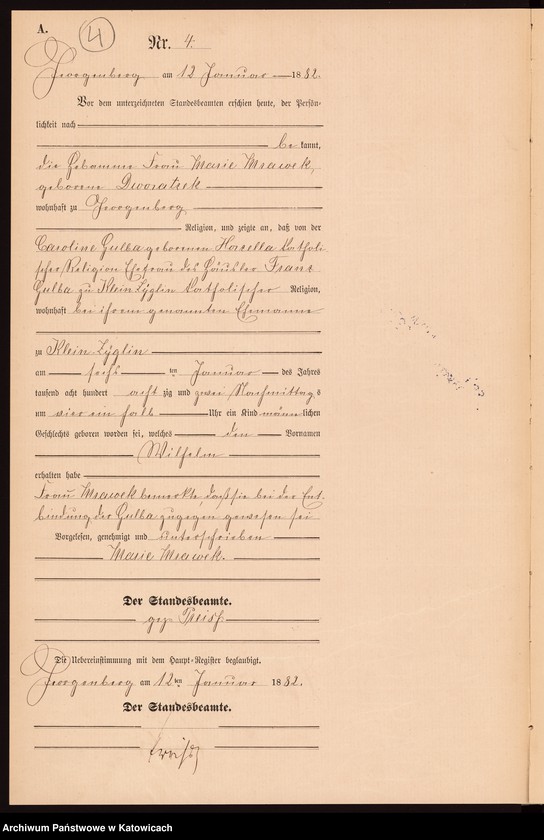 A.
4
Nr. 4.
Georgenberg am 12 Januar 1882.
Vor dem unterzeichneten Standesbeamten erschien heute, der Persön-
lichkeit nach
be kannt,
die Hebamme Frau Marie Mrawek,
geborene Dworatzek
wohnhaft zu Georgenberg
Religion, und zeigte an, daß von der
Caroline Gulba geborenen Horzella katholi
scher Religion Ehefrau des Häusler Franz
Gulba zu Klein Zyglin katholischer Religion,
wohnhaft bei ihrem genannten Ehemanne
zu Klein-Zyglin
am sechs ten Januar des Jahres
tausend acht hundert acht zig und zwei Nachmittags
um vier ein halb Uhr ein Kind männ lichen
Geschlechts geboren worden sei, welches den Vornamen
Wilhelm
erhalten habe
Frau Mrawek bemerkte, daß sie bei der Ent-
bindung der Gulba zugegen gewesen sei
Vorgelesen, genehmigt und unterschrieben
Marie Mrawek.
Der Standesbeamte.
gez
Die Uebereinstimmung mit dem Haupt-Register beglaubigt.
Georgenberg am 12ten Januar 1882.
Der Standesbeamte.
Archiwum Państwowe w Katowicach